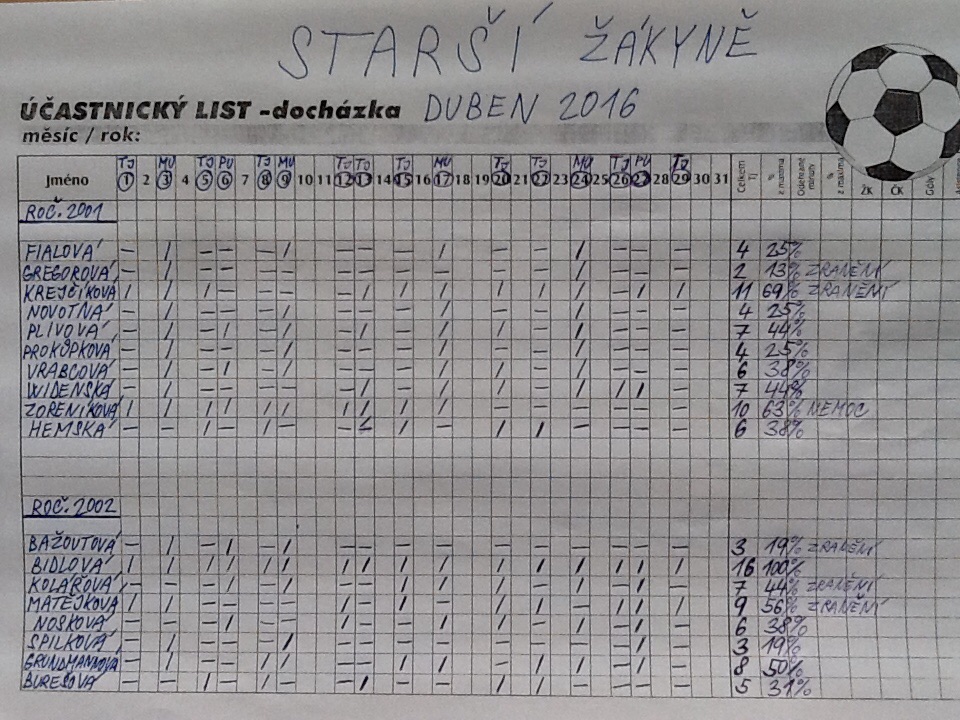 STARŠÍ ŽÁKYNĚ
ÚČASTNICKÝ LIST -docházka DUBEN 2016
měsíc / rok:
TJ MU TJ PU TJ MU TJ TJ TJ MU TJ TJ MU TJ PU TJ
Jméno 1 2 3 4 5 6 7 8 9 10 11 12 13 14 15 16 17 18 19 20 21 22 23 24 25 26 27 28 29 30 31 Celkem TJ % z maxima Odehrané minuty % z maxima ŽK ČK Góly
ROČ. 2001
FIALOVÁ - / - - - / - - - / - - / - - - 4 25%
GREGOROVÁ - / - - - - - - - - - - / - - - 2 13% ZRANĚNÍ
KREJČÍKOVÁ / / / - - - - / / / / / / - / / 11 69% ZRANĚNÍ
NOVOTNÁ - / - - - / - - - / - - / - - - 4 25%
PLÍVOVÁ - / - / - / - / - / - - / - / - 7 44%
PROKŮPKOVÁ - / - - - / - - - / - - / - - - 4 25%
VRABCOVÁ - / - / - / - - - / - - / - / - 6 38%
WIDENSKÁ - / - - - - - / - / - - / / / - 7 44%
ZORENÍKOVÁ / / / / / / / / / / - - - - - - 10 63% NEMOC
HEMSKÁ - - / - / - - / / - / / - - - - 6 38%
ROČ. 2002
BAŽOUTOVÁ - / - / - / - - - - - - - - - - 3 19% ZRANĚNÍ
BIDLOVÁ / / / / / / / / / / / / / / / / 16 100%
KOLÁŘOVÁ - - - / - / - - / / - - / - / - 7 44% ZRANĚNÍ
MATĚJKOVÁ / / - - - - / - / - / - - / / / 9 56% ZRANĚNÍ
NOSKOVÁ - - - / - - - - - / / - / - / - 6 38%
ŠPILKOVÁ - / - - - / - - - - - - - - / - 3 19%
GRUNDMANNOVÁ - / - - / / - - / / - / / - / - 8 50%
BUREŠOVÁ - - / - / - - / - - / / - - - - 5 31%